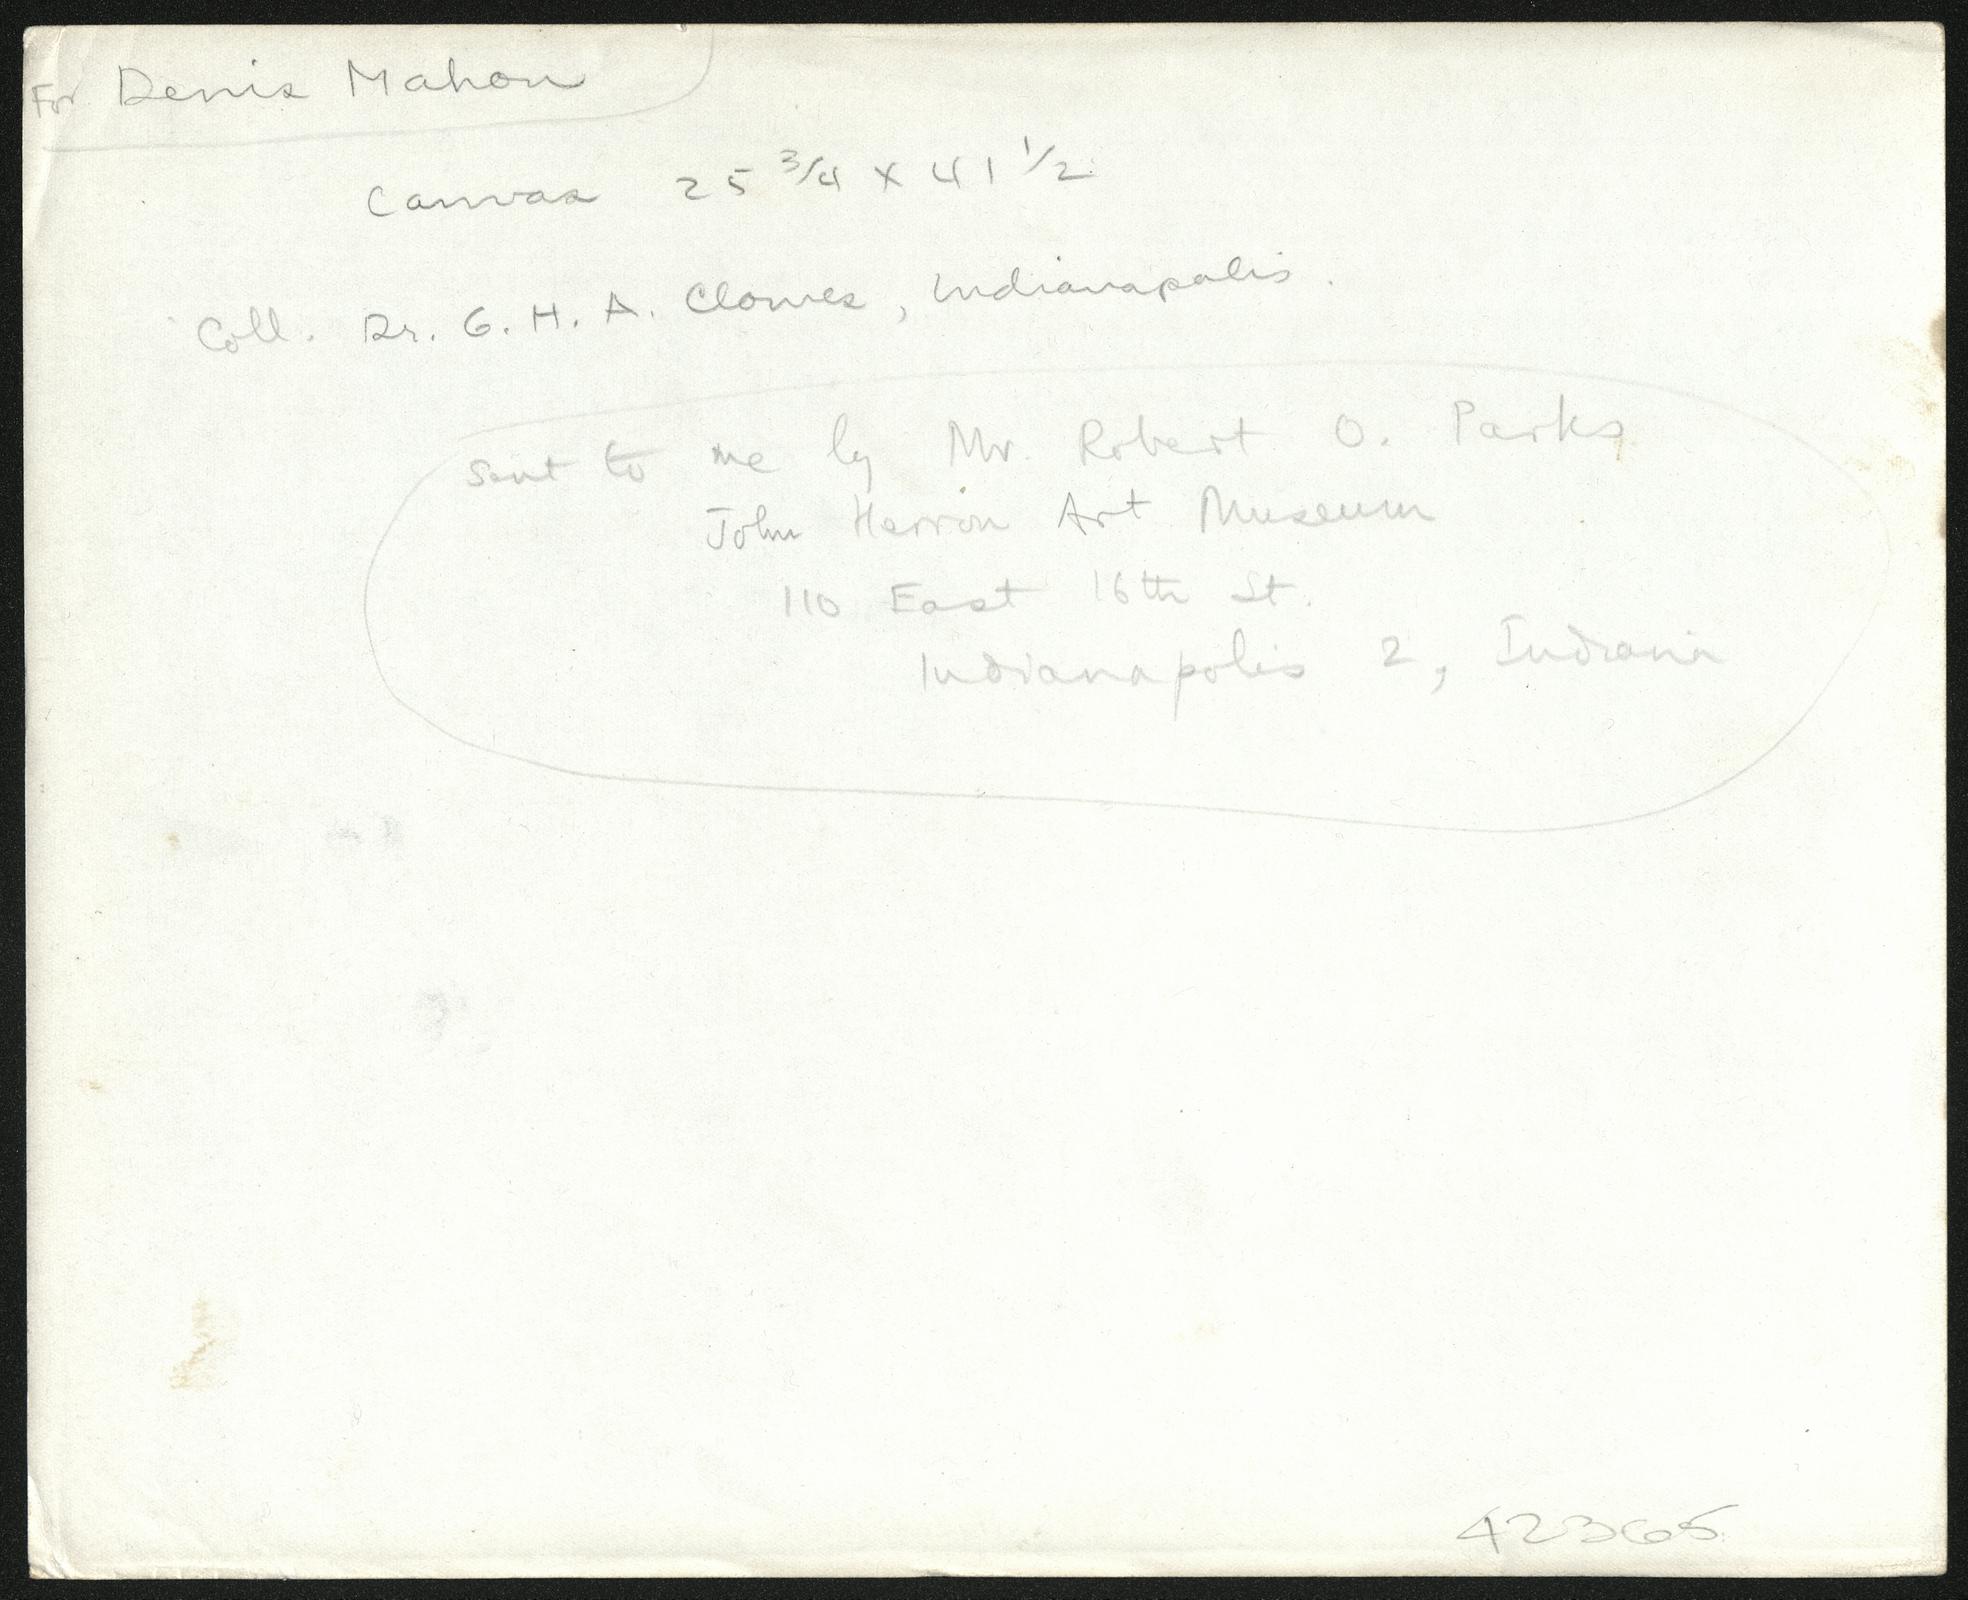 For Denis Mahon
Canvas 25 3/4 x 41 1/2
Coll. Dr. G. H. A. Clowes, Indianapolis.
sent to me by Mr. Robert O. Parks
John Herron Art Museum
110 East 16th St.
Indianapolis 2, Indiana
42365